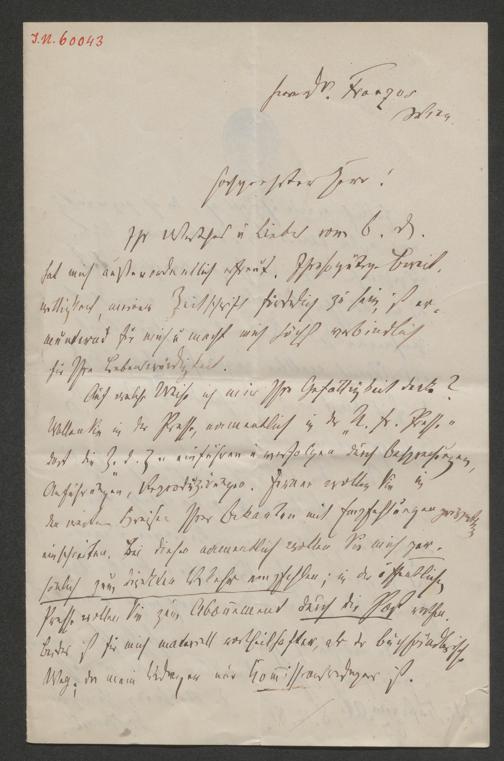 I.N. 60043
Herrn Dr. Franzos
Wien.
Hochgeehrter Herr!
Ihr Werthes u Liebes vom 6. d.
hat mich außerordentlich erfreut. Ihre gütige Bereit-
willigkeit, meiner Zeitschrift förderlich zu sein, ist er-
munternd für mich u macht mich höchst verbindlich
für Ihre Liebenswürdigkeit.
Auf welche Weise ich mir Ihre Gefälligkeit denke?
Wollen Sie in der Presse, namentlich in der "N. fr. Presse"
dort die Z. d. Z. einführen u verfolgen durch Besprechungen,
Anführungen, Reproduzirungen. Ferner wollen Sie in
den weiten Kreisen Ihrer Bekannten mit Empfehlungen
einschreiten. Bei diesen namentlich wollen Sie mich per-
sönlich zum direkten Verkehr empfehlen; in der öffentlichen
Presse wollen Sie zum Abonnement durch die Post rathen.
Beides ist für mich materiell vortheilhafter, als der buchhändlerische
Weg, der mein Verleger nur Kommissionsverleger ist.